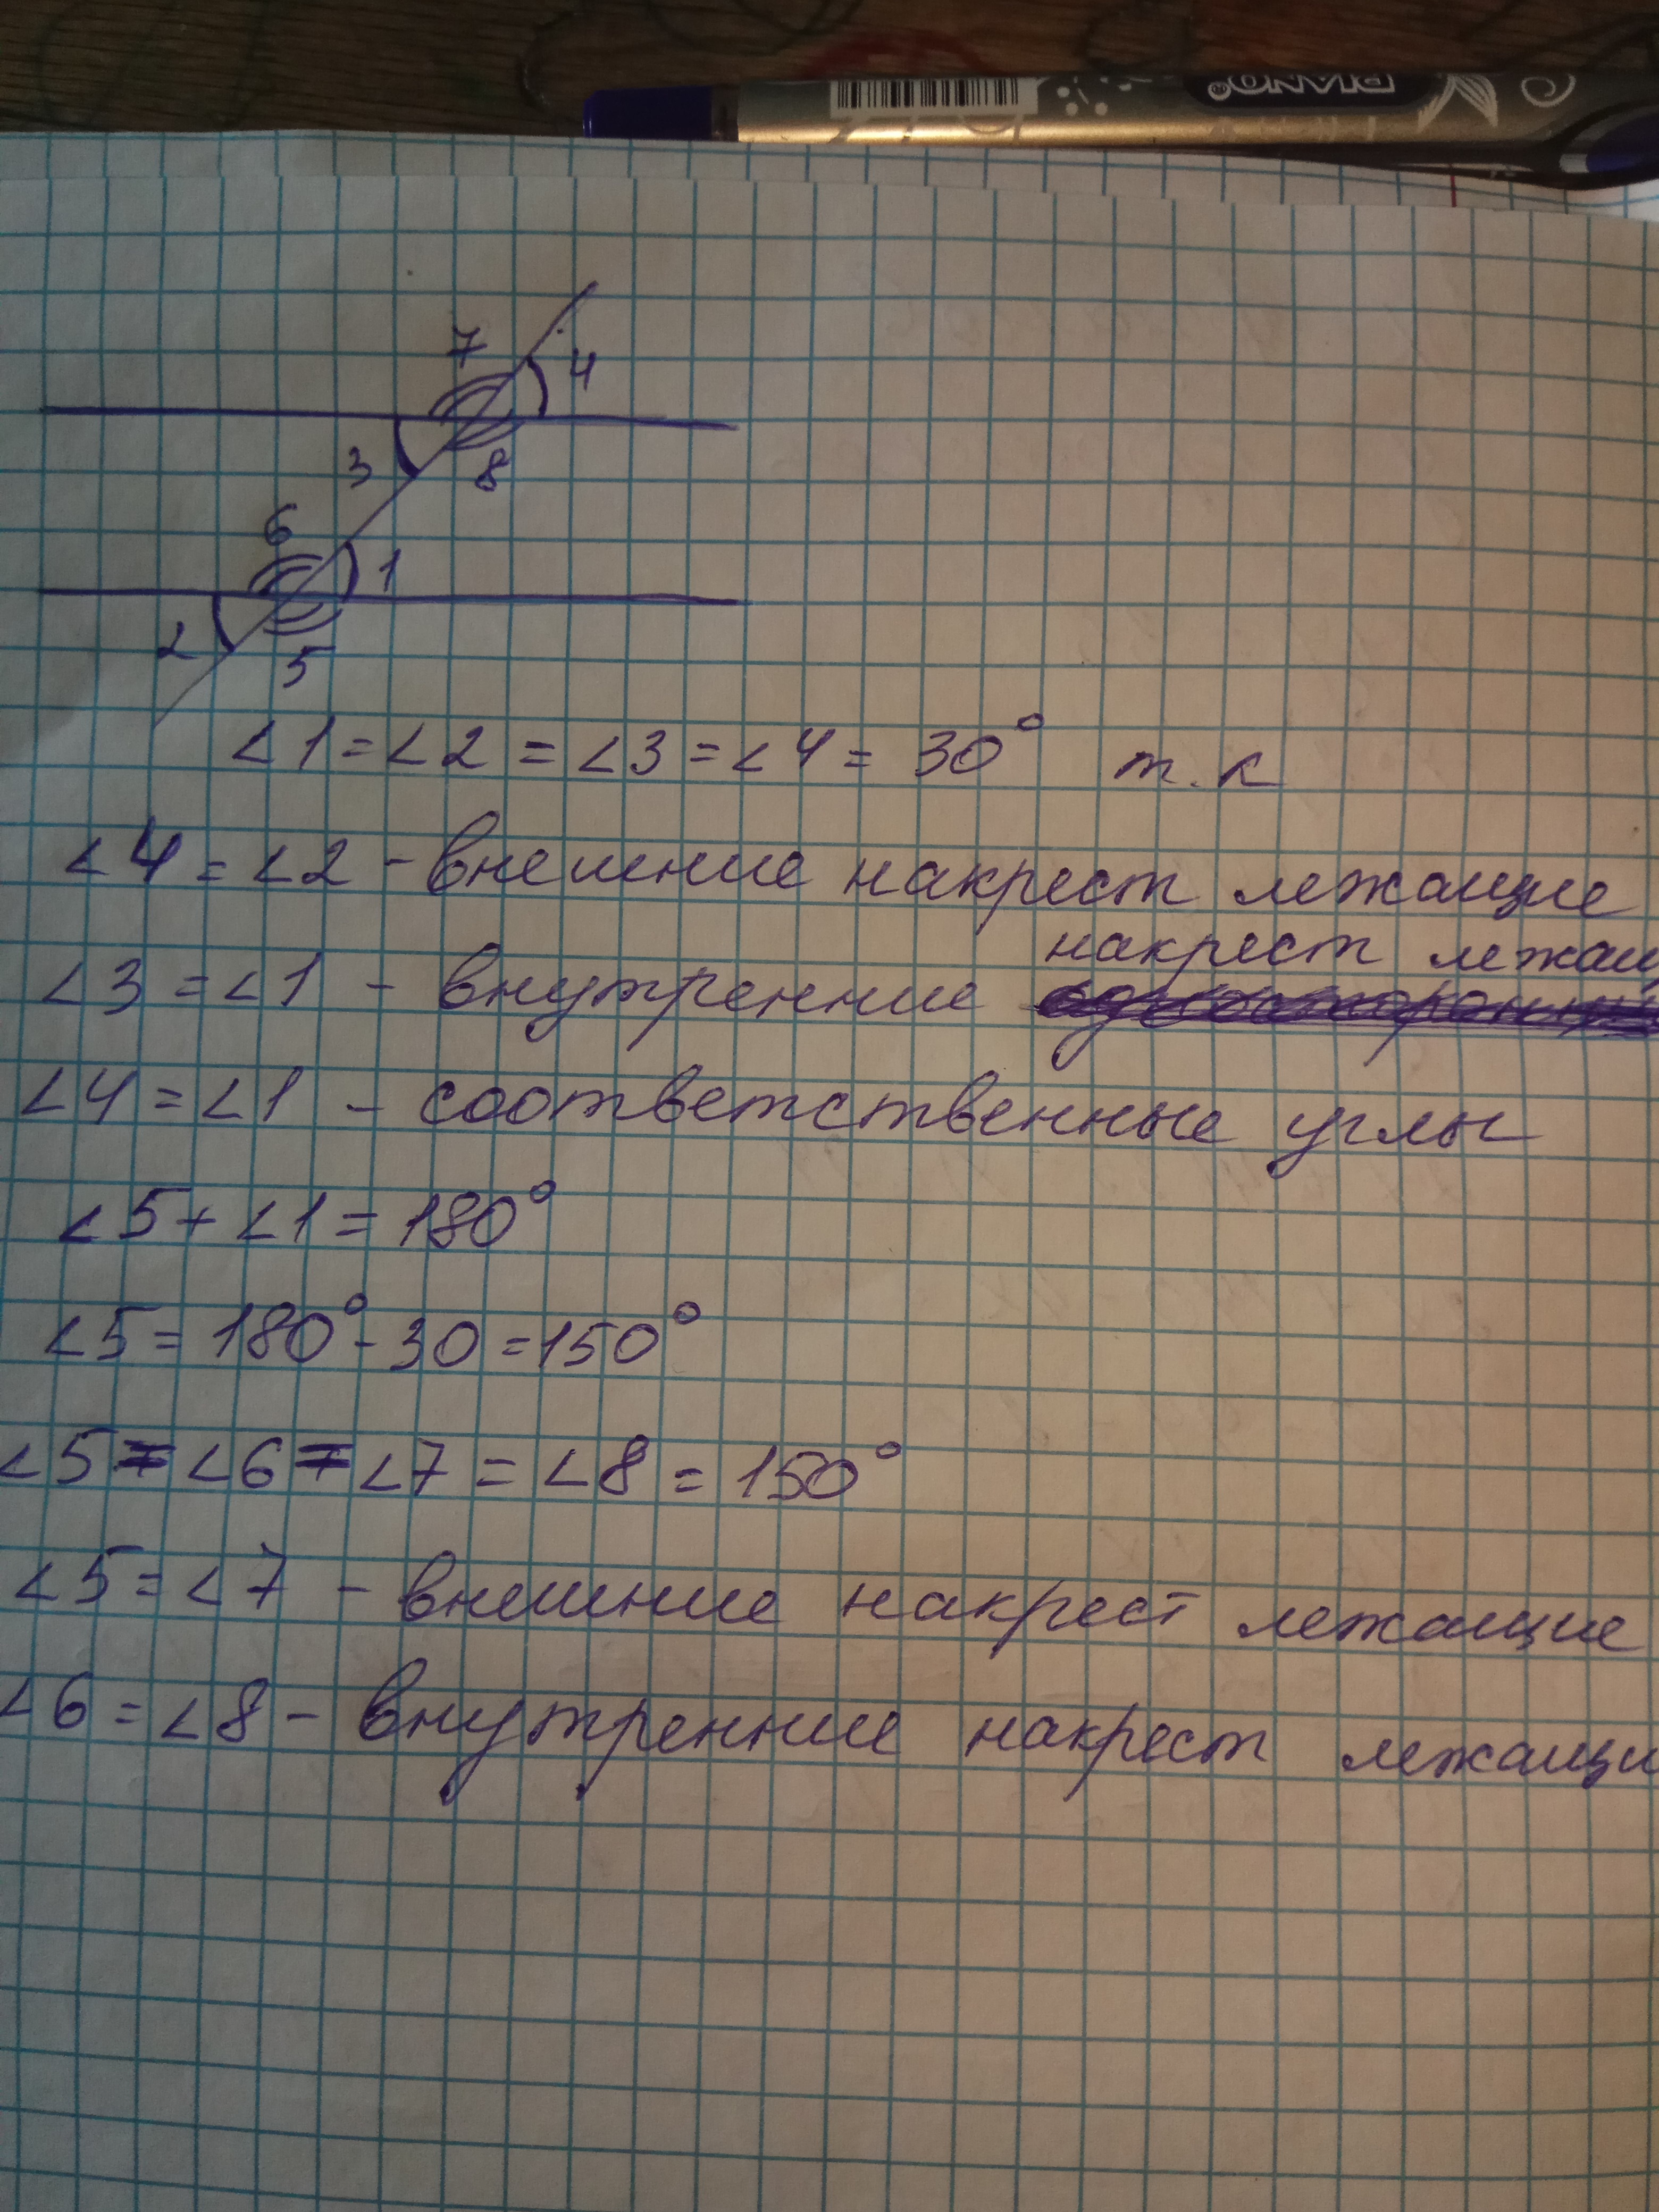 PIANO
7
4
3
8
6
1
2
5
∠1 = ∠2 = ∠3 = ∠4 = 30° т.к
∠4 = ∠2 - внешние накрест лежащие
накрест лежащ
∠3 = ∠1 - внутренние
∠4 = ∠1 - соответственные углы
∠5 + ∠1 = 180°
∠5 = 180° - 30 = 150°
∠5 = ∠6 = ∠7 = ∠8 = 150°
∠5 = ∠7 - внешние накрест лежащие
∠6 = ∠8 - внутренние накрест лежащи